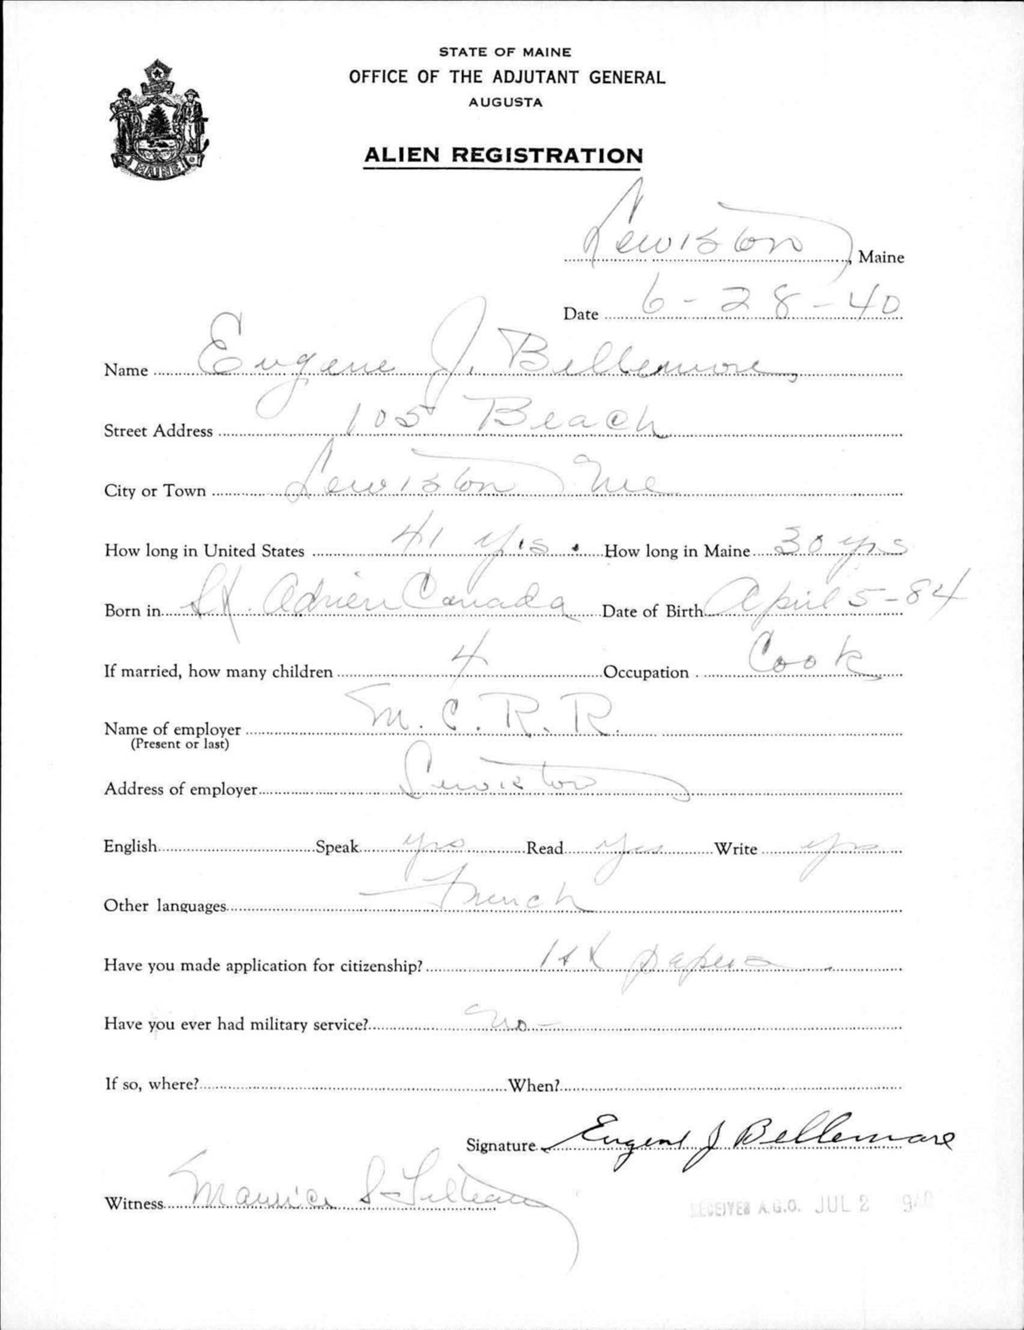 STATE OF MAINE
OFFICE OF THE ADJUTANT GENERAL
AUGUSTA
MAINE
ALIEN REGISTRATION
Lewiston, Maine
Date 6-28-40
Name Eugene J. Bellemare,
Street Address 105 Beach
City or Town Lewiston Me
How long in United States 41 yrs. How long in Maine 30 yrs
Born in St. Adrien Canada Date of Birth April 5-84
If married, how many children 4 Occupation Cook
Name of employer M.C.R.R.
(Present or last)
Address of employer Lewiston
English Speak yes Read Yes Write yes
Other languages French
Have you made application for citizenship? 1st papers
Have you ever had military service? No -
If so, where? When?
Signature Eugene J Bellemare
Witness Maurice S.
RECEIVED A.G.O. JUL 2 940